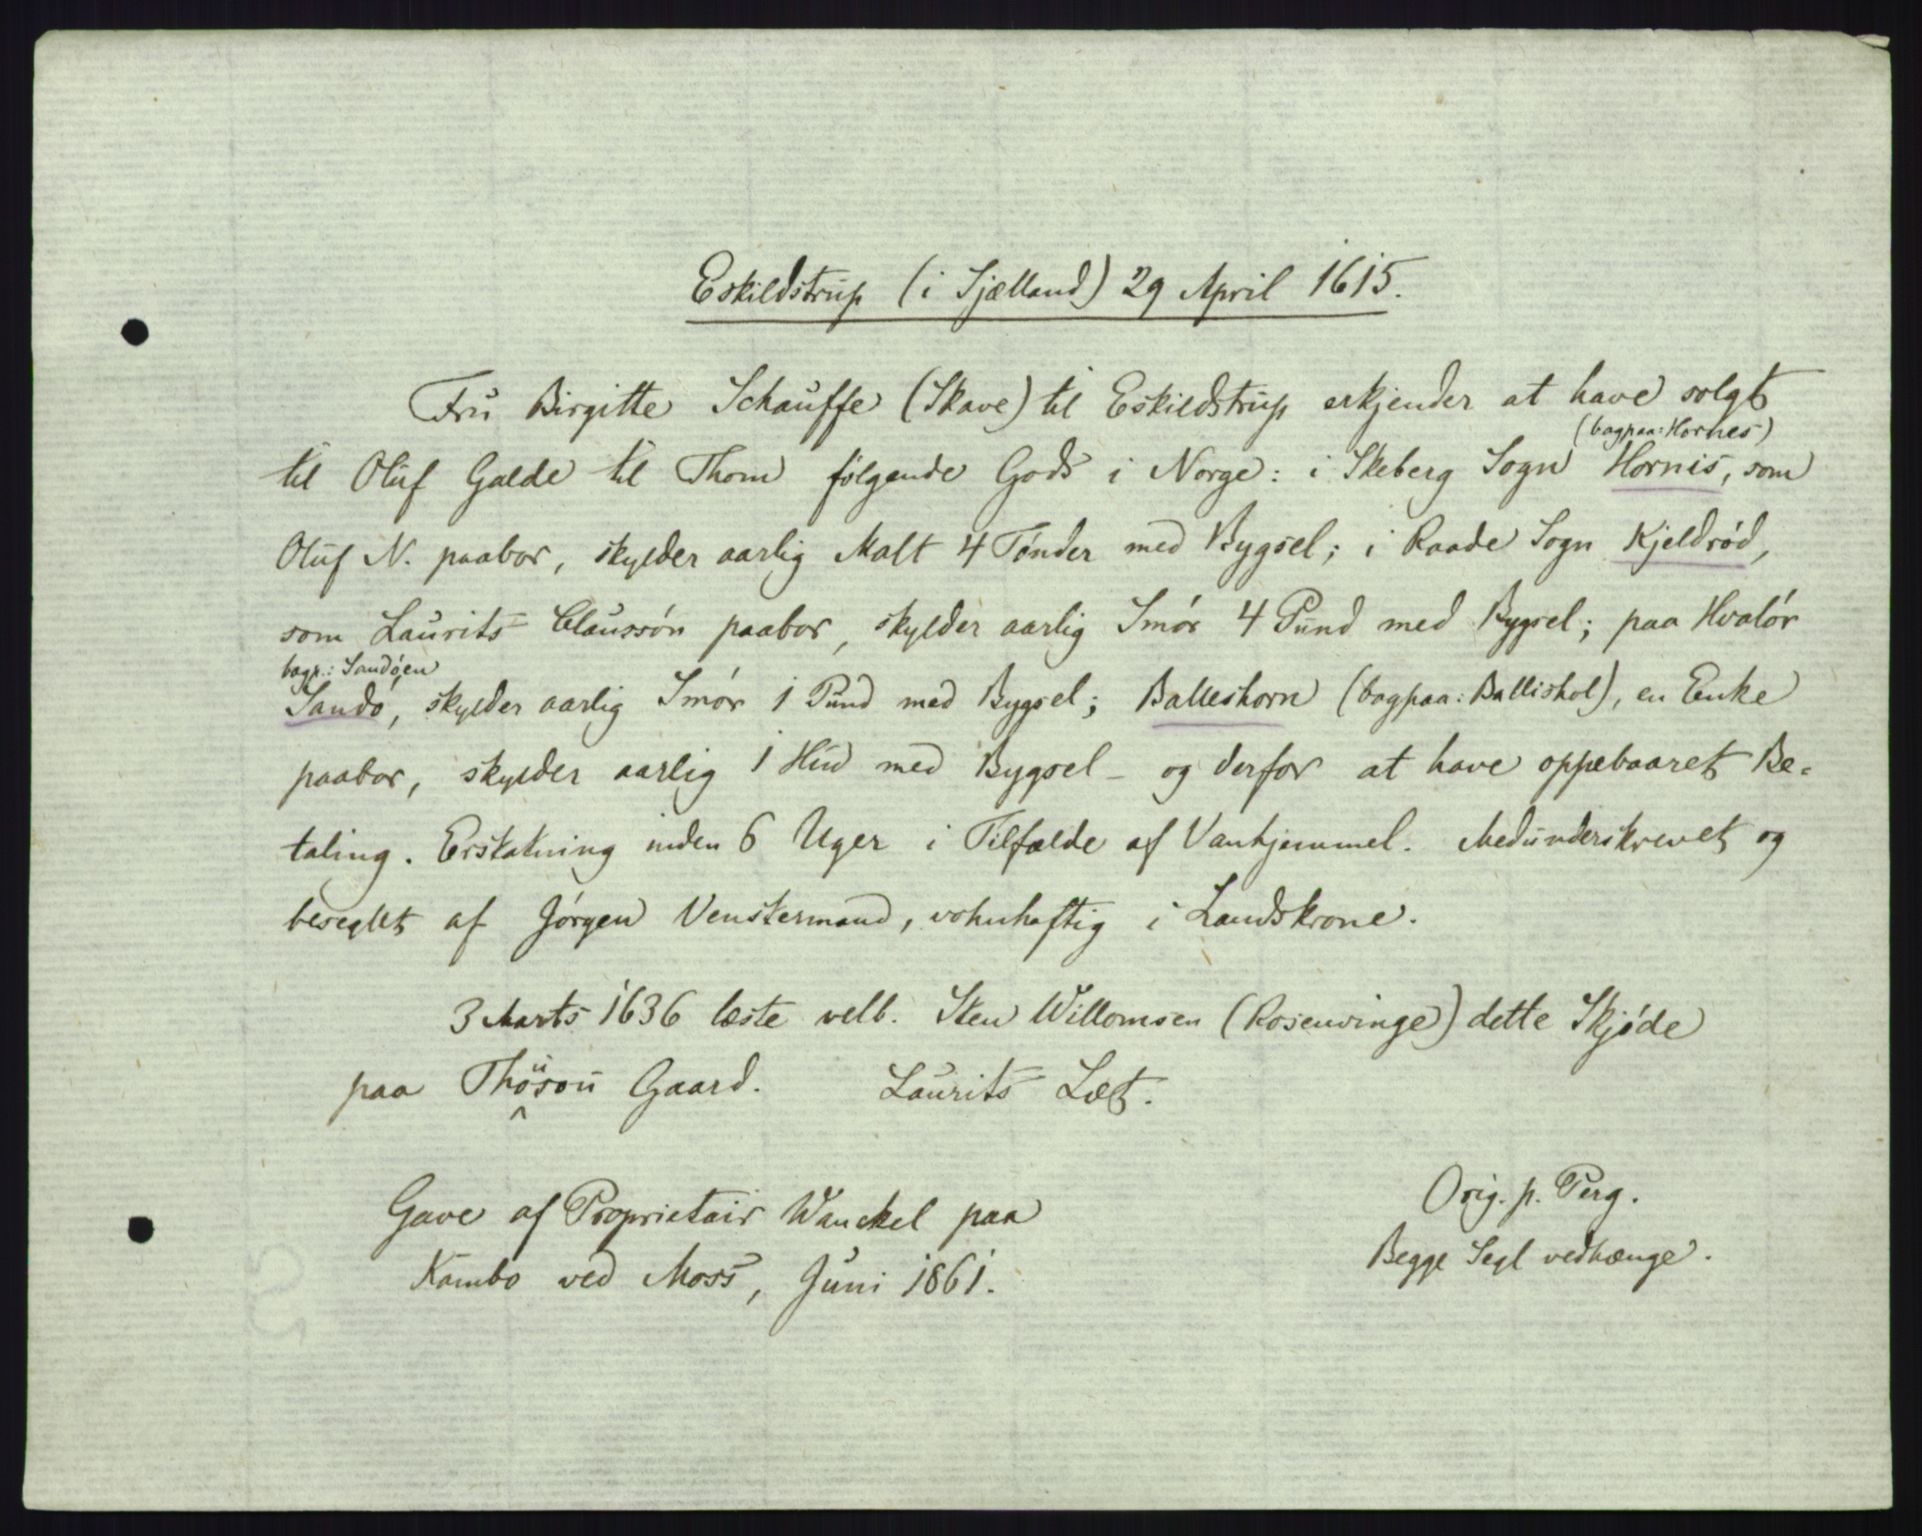 Eskildstrup (i Sjælland) 29 April 1615.
Fru Birgitte Schauffe (Skave) til Eskildstrup erkjender at have solgt
(bagpaa: Hornes)
til Oluf Galde til Thom følgende Gods i Norge: i Skeberg Sogn Hornis, som
Oluf N. paabor, skylder aarlig Malt 4 Tønder med Bygsel; i Raade Sogn Kjeldrød,
som Laurits Claussøn paabor, skylder aarlig Smør 4 Pund med Bygsel; paa Hvalør
bagp.: Sandøen
Sandø, skylder aarlig Smør 1 Pund med Bygsel; Balleshorn (bagpaa: Ballishol), en Enke
paabor, skylder aarlig 1 Hud med Bygsel - og derfor at have oppebaaret Be-
taling. Erstatning inden 6 Uger i Tilfælde af Vanhjemmel. Medunderskrevet og
beseglet af Jørgen Venstermand, vohnhaftig i Landskrone.
3 Marts 1636 læste velb. Sten Willomsen (Rosenvinge) dette Skjøde
paa Gaard. Laurits Læt.
Gave af Proprietair Wanckel paa
Kambo ved Moss, Juni 1861.
Orig. p. Perg.
Begge Segl vedhænge.